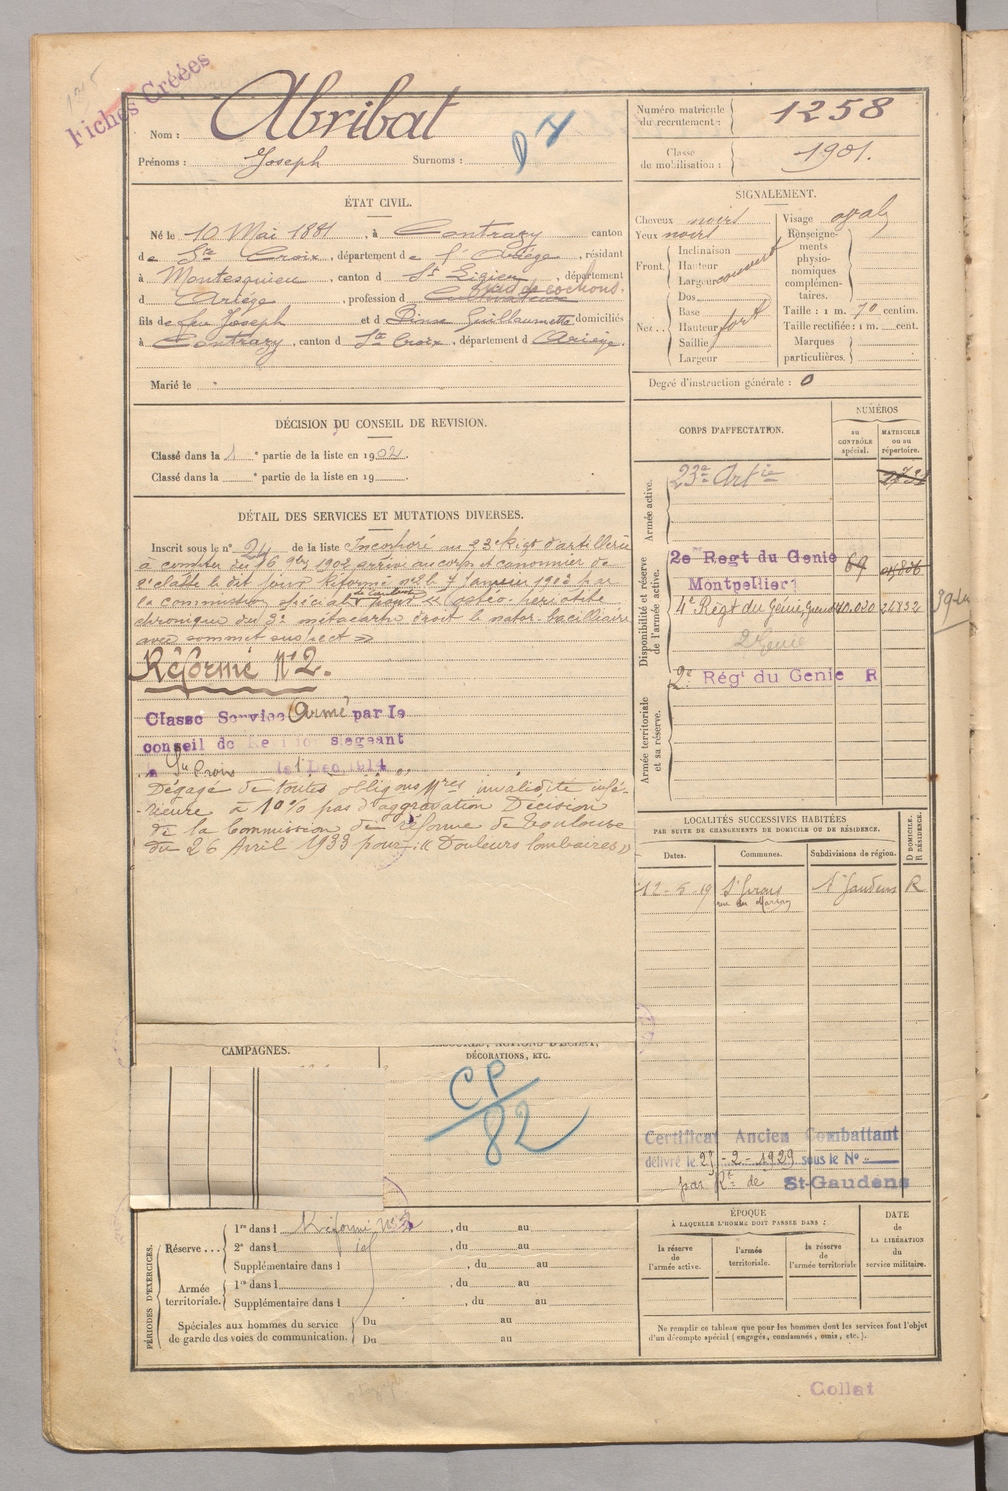 Fiches Créées
Nom : Abribat
Prénoms : Joseph Surnoms :
Numéro matricule du recrutement : 1258
Classe de mobilisation : 1901.
ÉTAT CIVIL.
Né le 10 Mai 1881, à Contrazy canton
de Ste Croix, département de l'Ariège, résidant
à Montesquieu, canton d St Lizier, département
d Ariège, profession d Cultivateur
fils de feu Joseph et d Guillaumette domiciliés
à Contrazy, canton d Ste Croix, département d Ariège.
Marié le
SIGNALEMENT.
Cheveux noirs
Yeux noirs
Front. Inclinaison
Hauteur
Largeur couvert
Nez. Dos
Base
Hauteur fort
Saillie
Largeur
Visage ovale
Renseignements physionomiques complémentaires.
Taille : 1 m. 70 centim.
Taille rectifiée : 1 m. cent.
Marques particulières.
Degré d'instruction générale : 0
DÉCISION DU CONSEIL DE REVISION.
Classé dans la 1 e partie de la liste en 1902.
Classé dans la e partie de la liste en 19
DÉTAIL DES SERVICES ET MUTATIONS DIVERSES.
Inscrit sous le n° 24 de la liste Incorporé au 23e Régt d'artillerie
à compter du 16 9bre 1902 arrivé au corps et canonnier de
2e classe le dit jour Réformé n° 2 le 7 janvier 1903 par
la commission spéciale pour « Ostéo-périostite
chronique du 2e métacarpe droit le natur. bacillaire
avec sommet suspect »
Réformé N°2.
Classé Service Armé par le
conseil de Revision siégeant
à Ste Croix le 1 Dec 1914
Dégagé de toutes obligons Mres invalidité infé-
-rieure à 10% pas d'aggravation Décision
de la Commission de réforme de Toulouse
du 26 Avril 1933 pour : « Douleurs lombaires »
CORPS D'AFFECTATION.
NUMÉROS
au CONTRÔLE spécial.
MATRICULE ou au répertoire.
Armée active.
23e Artie
Disponibilité et réserve de l'armée active.
2e Regt du Genie 69
Montpellier
4e Régt du Génie, 40.030 24832
2 Génie
Armée territoriale et sa réserve.
2e Régt du Genie R
LOCALITÉS SUCCESSIVES HABITÉES
PAR SUITE DE CHANGEMENTS DE DOMICILE OU DE RÉSIDENCE.
Dates. Communes. Subdivisions de région. D DOMICILE. R RÉSIDENCE.
12-5-19 St Girons St Gaudens R
CAMPAGNES.
DÉCORATIONS, ETC.
CP
82
Certificat Ancien Combattant
délivré le 25-2-1929 sous le N°
par Rt de St-Gaudens
PÉRIODES D'EXERCICES.
Réserve... 1re dans l Réformé N° 2, du au
2e dans l, du au
Supplémentaire dans l, du au
Armée territoriale. 1re dans l, du au
Supplémentaire dans l, du au
Spéciales aux hommes du service de garde des voies de communication. Du au
Du au
ÉPOQUE
À LAQUELLE L'HOMME DOIT PASSER DANS :
la réserve de l'armée active.
l'armée territoriale.
la réserve de l'armée territoriale
DATE de LA LIBÉRATION du service militaire.
Ne remplir ce tableau que pour les hommes dont les services font l'objet
d'un décompte spécial (engagés, condamnés, omis, etc.).
Collat